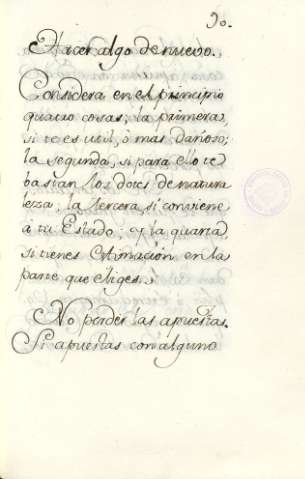 90.
Hacer algo de nuevo.
Considera en el principio
quatro cosas; la primera,
si te es util, ò mas dañoso;
la segunda, si para ello te
bastan los dotes de natura
leza; la tercera, si conviene
à tu Estado; y la quarta,
si tienes estimacion en la
parte que eliges.
No perder las apuestas.
Si apuestas con alguno